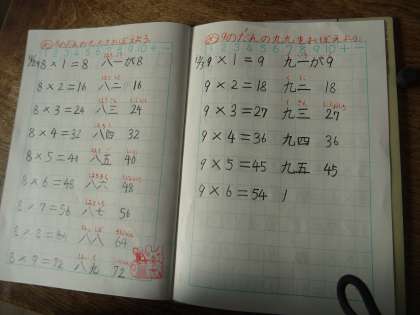 8のだんの九九をおぼえよう
8 × 1 = 8 八一が8
8 × 2 = 16 八二 16
8 × 3 = 24 八三 24
8 × 4 = 32 八四 32
8 × 5 = 40 八五 40
8 × 6 = 48 八六 48
8 × 7 = 56 八七 56
8 × 8 = 64 八八 64
8 × 9 = 72 八九 72
9のだんの九九をおぼえよう
1 2 3 4 5 6 7 8 9 10 + −
9 × 1 = 9 九一が9
9 × 2 = 18 九二 18
9 × 3 = 27 九三 27
9 × 4 = 36 九四 36
9 × 5 = 45 九五 45
9 × 6 = 54